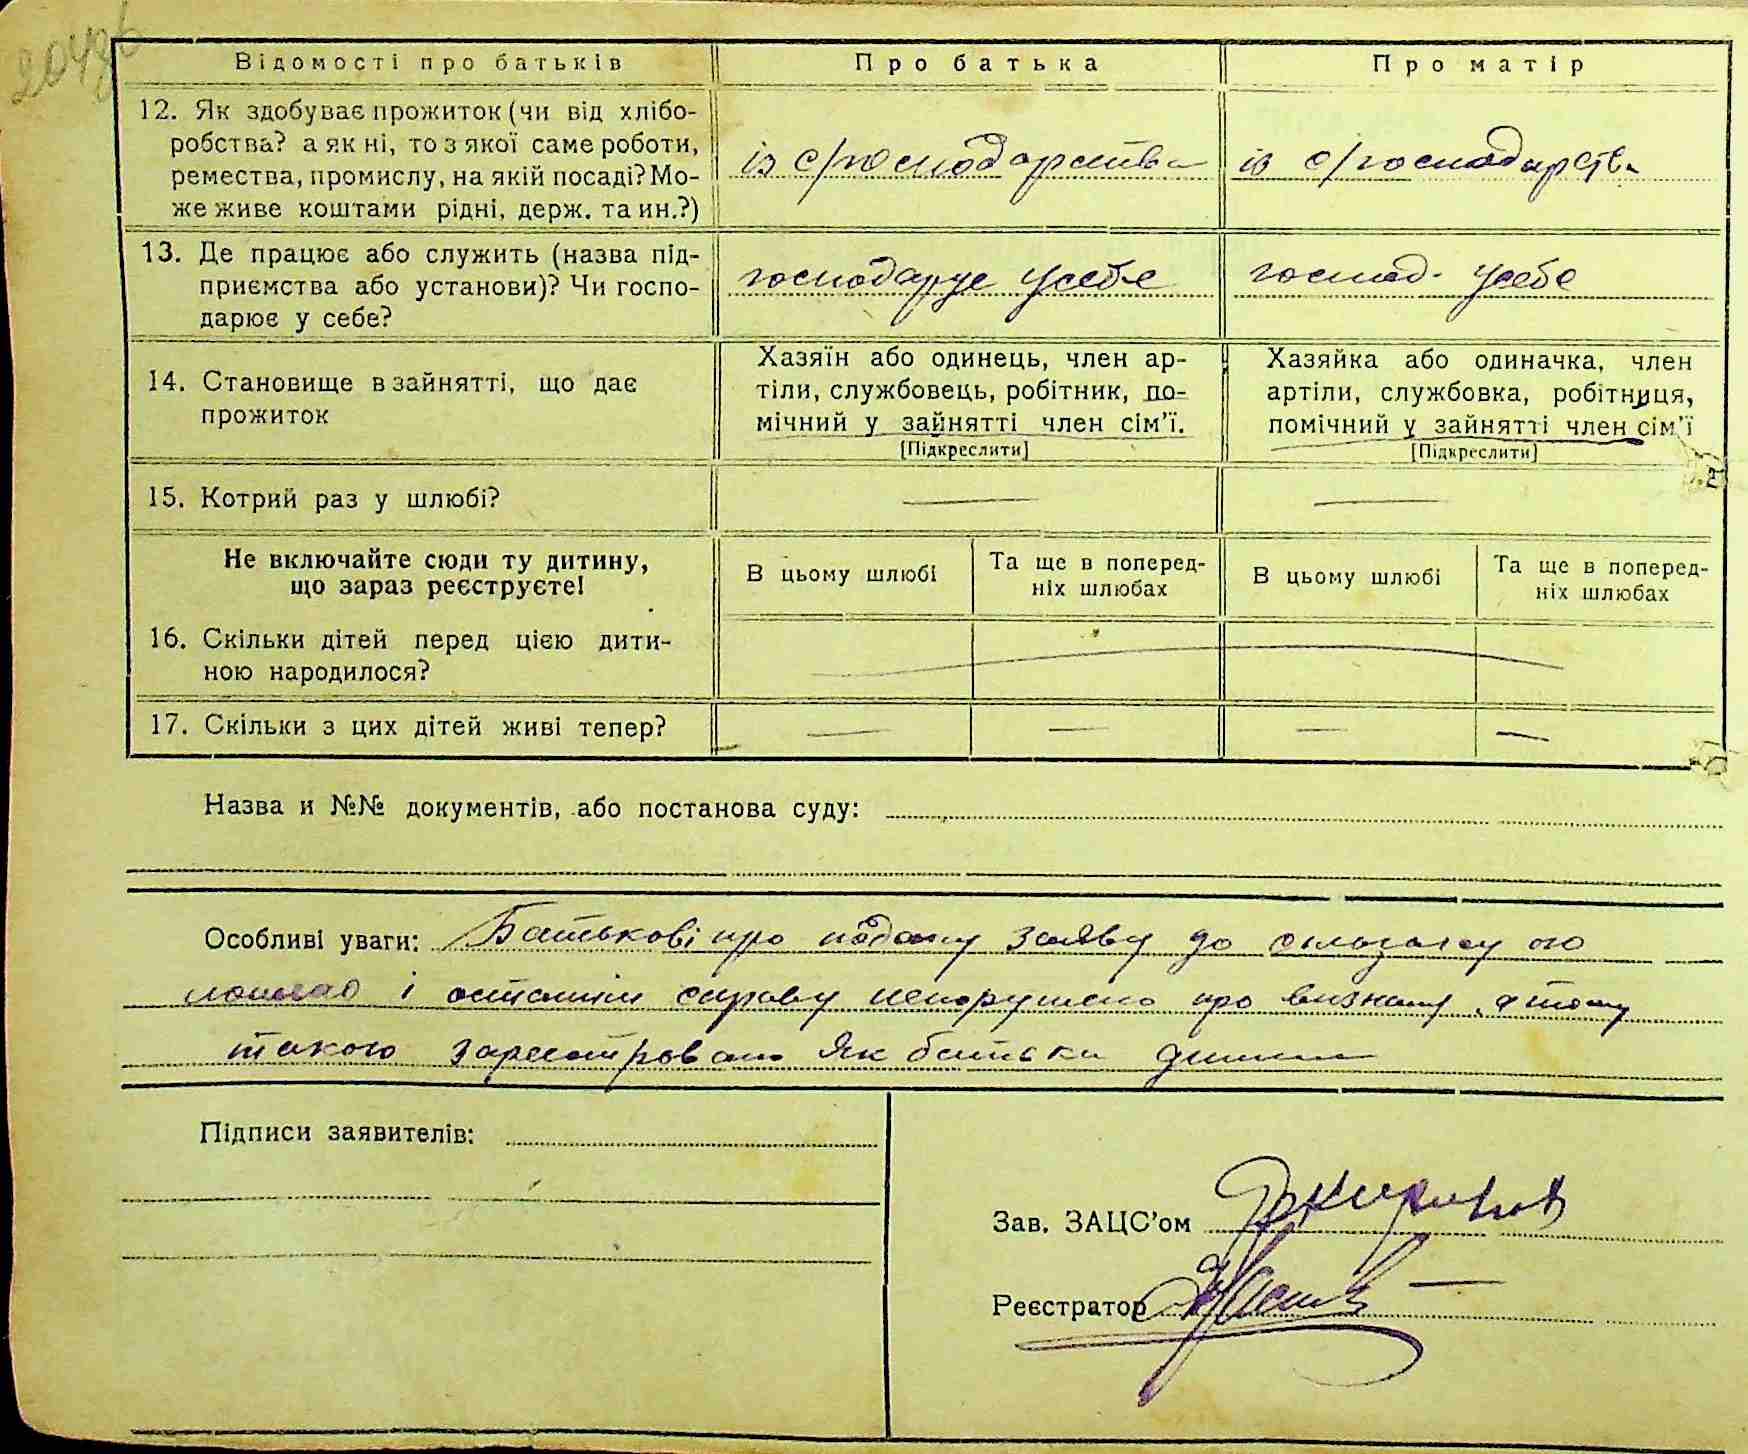 Відомості про батьків Про батька Про матір
12. Як здобуває прожиток (чи від хлібо-
робства? а як ні, то з якої саме роботи,
ремества, промислу, на якій посаді? Мо-
же живе коштами рідні, держ. та ин.?)
із с/господарства із с/господарства
13. Де працює або служить (назва під-
приємства або установи)? Чи госпо-
дарює у себе?
господарує усебе господ. усебе
14. Становище в зайнятті, що дає
прожиток
Хазяїн або одинець, член ар-
тіли, службовець, робітник, по-
мічний у зайнятті член сім'ї.
[Підкреслити]
Хазяйка або одиначка, член
артіли, службовка, робітниця,
помічний у зайнятті член сім'ї
[Підкреслити]
15. Котрий раз у шлюбі? — —
Не включайте сюди ту дитину,
що зараз реєструєте!
В цьому шлюбі
Та ще в поперед-
ніх шлюбах
В цьому шлюбі
Та ще в поперед-
ніх шлюбах
16. Скільки дітей перед цією дити-
ною народилося?
17. Скільки з цих дітей живі тепер? — — — —
Назва и №№ документів, або постанова суду:
Особливі уваги: Батькові про подану заяву до
і останнім справу непорушено про визнану, а тому
такого зареєстровано як батька дитини
Підписи заявителів:
Зав. ЗАЦС'ом
Реєстратор